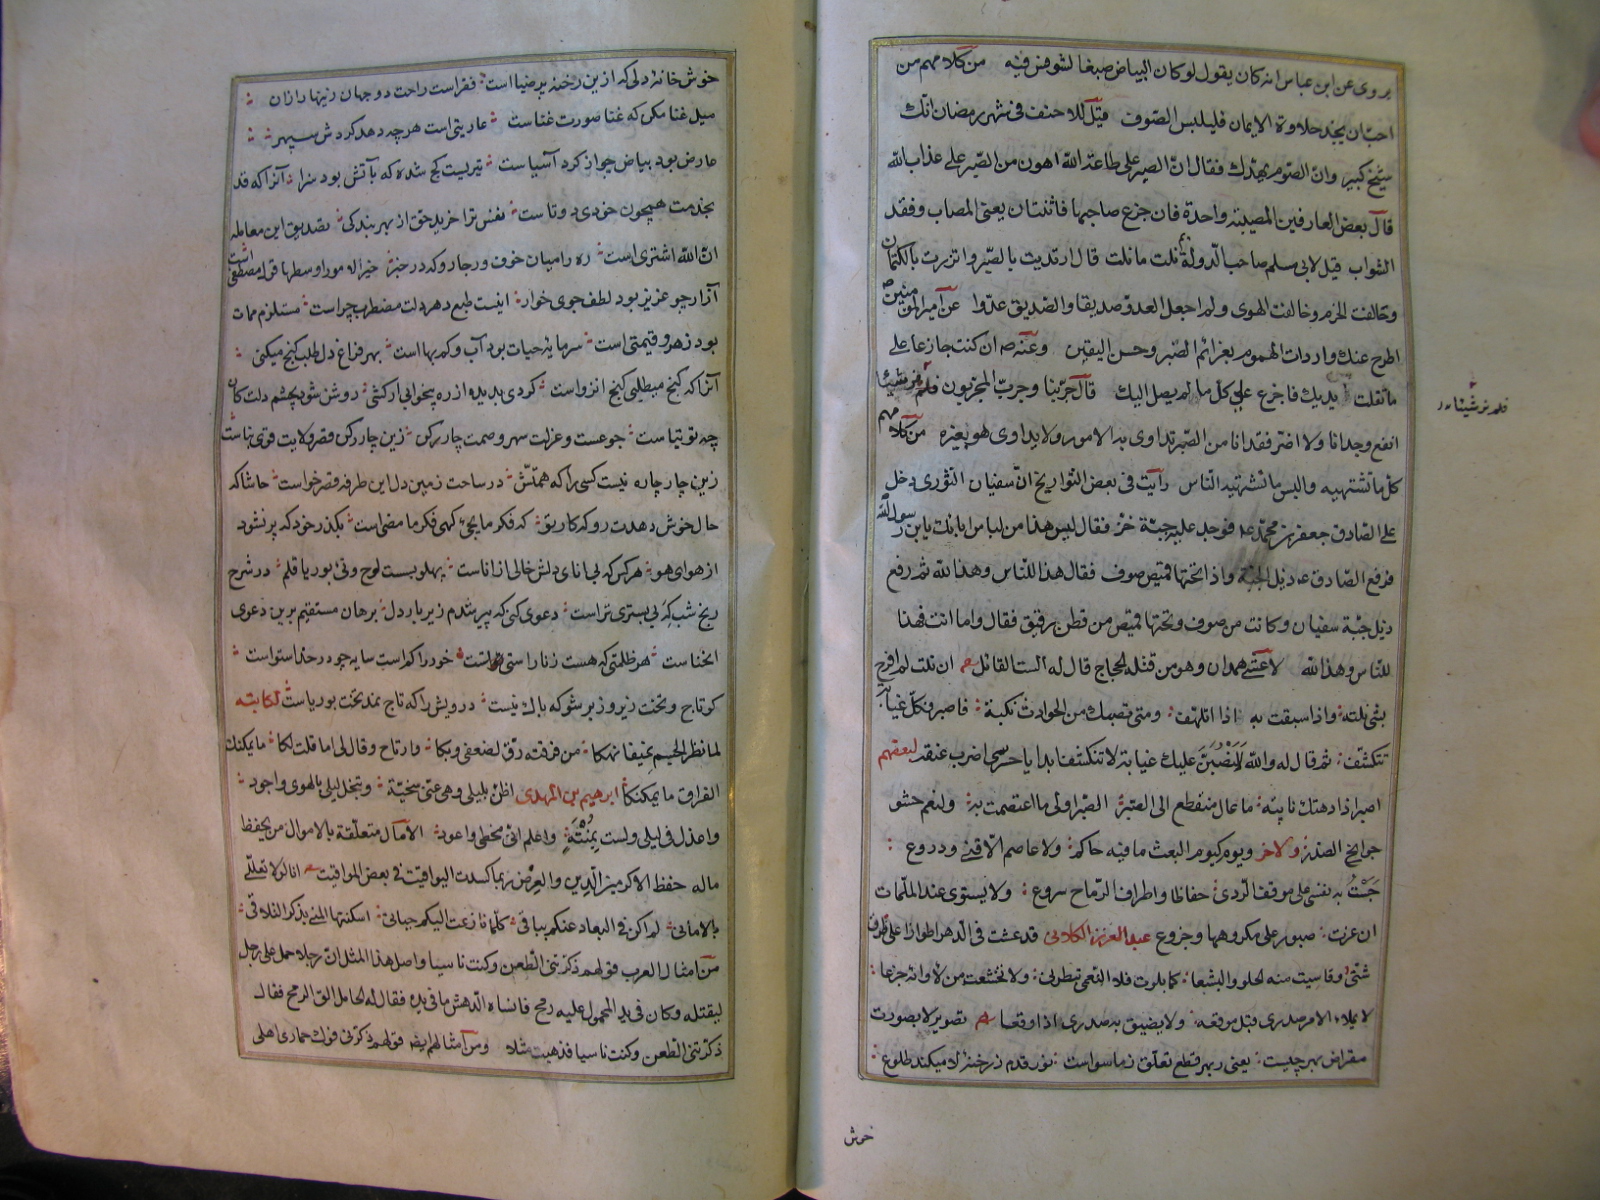 يروى عن ابن عباس انه كان يقول لو كان البياض صبغا لتنوفس فيه من كلامهم من
احب ان يجد حلاوة الايمان فليلبس الصوف قيل للاحنف فى شهر رمضان انك
شيخ كبير وان الصوم يهدك فقال ان الصبر على طاعة الله اهون من الصبر على عذاب الله
قال بعض العارفين المصيبة واحدة فان جزع صاحبها فاثنتان يعنى المصاب وفقد
الثواب قيل لابى مسلم صاحب الدولة بم نلت ما نلت قال ارتديت بالصبر واتزرت بالكتمان
وحالفت الحزم وخالفت الهوى ولم اجعل العدو صديقا والصديق عدوا عن امير المؤمنين
اطرح عنك واردات الهموم بعزائم الصبر وحسن اليقين وعنه ان كنت جازعا على
ما تفلت يديك فاجزع على كل ما لم يصل اليك قال جربنا وجرب المجربون فلم نر شيئا
فلم نر شيئا
انفع وجدانا ولا اضر فقدانا من الصبر تداوى به الامور ولا يداوى هو بغيره من كلامهم
كل ما تشتهيه والبس ما تشتهيه الناس رأيت فى بعض التواريخ ان سفيان الثورى دخل
على الصادق جعفر بن محمد فوجد عليه جبة خز فقال ليس هذا من لباس ابائك يابن رسول الله
فرفع الصادق ذيل الجبة واذا تحتها قميص صوف فقال هذا للناس وهذا لله ثم رفع
ذيل جبة سفيان وكانت من صوف وتحتها قميص من قطن رقيق فقال واما انت فهذا
للناس وهذا لله لاعشى همدان وهو من قتله الحجاج قال له الست القائل ان نلت لم افرح
بشئ نلته واذا سبقت به اذا اتلهف ومتى تصبك من الحوادث نكبة فاصبر فكل غيابة
تتكشف ثم قال له والله عليك غيابة لا تنكشف ابدا يا حرسى اضرب عنقه لبعضهم
اصبر اذا دهتك نايبة ما عال منقطع الى الصبر الصبر اولى ما اعتصمت به ولنعم حشو
جوانح الصدر ولاخر ويوم كيوم البعث ما فيه حاكم ولا عاصم الا قنى ودروع
به نفسى على موقف الردى حفاظا واطراف الرماح سروع ولا يستوى عند الملمات
ان عرت صبور على مكروهها وجزوع عبد العزيز الكلابى قد عشت فى الدهر اطوارا على طرق
شتى وقاسيت منه الحلو والبشعا كلا بلوت فلا النعمى تبطرنى ولا تخشعت من لاوائه جزعا
لا يملاء الامر صدرى قبل موقعه ولا يضيق به صدرى اذا وقعا تصوير لا بصورت
مقراض بهر چيست يعنى بهر قطع تعلق ز ماسواست نور قدم ز رخنه لا ميكند طلوع
خوش
خوش خانه دلى كه ازين رخنه پر ضيا است فقر است راحت دو جهان زينهار ازان
ميل غنا مكن كه غنا صورت غناست عاريتى است هر چه دهد كردش سپهر
عارض بود بياض چو از كرد آسيا است تيريست كج شده كه بآتش بود سزا آنرا كه قد
بخدمت همچون خودى دوتاست نفس ترا خريد حق از بهر بندكى تصديق اين معامله
ان الله اشترى است ره راميان خوف و رجا رو كه در خبر خير الامور اوسطها قول مصطفى است
آزار جو عزيز بود لطف جوى خوار اينست طبع دهر دلت مضطرب چراست مستلزم ممات
بود زهر و قيمتى است سرمايه حيات بود آب و كم بها است بهر فراغ دل طلب كنج ميكنى
آنرا كه كنج ميطلبى كنج انزواست كردى بديده از ره پيخوابى ار كشى روشن شود بچشم دلت كان
چه توتياست جوعست و عزلت سهر و صمت چار ركن زين چار ركن قصر ولايت قوى بناست
زين چار چاره نيست كسى را كه همتش در ساحت زمين دل اين طرفه قصر خواست حاشا كه
حال خوش دهدت رو كه كار تو كه فكر مايجئ كهى فكر ما مضى است بكذر ز خود كه پر نشود
از هواى هو هر كس كه بى ناى دلش خالى از اناست پهلو بست لوح و نى بوريا قلم در شرح
رنج شب كه بى بسترى تراست دعوى كنى كه پير شدم زير بار دل برهان مستقيم برين دعوى
انحناست هر ظلمتى كه هست ز ناراستى خود راكم است سايه چو در حد استواست
كو تاج و تخت زير و زبر شو كه باك نيست درويش را كه تاج نمد تخت بورياست لكاتبه
لما نظر الجسم نهكا من فرقته رق لضعفى وبكا وارتاح وقال لى اما قلت لكا ما يمكنك
الفراق ما يمكنكا ابرهيم بن المهدى اظن بليلى وهى عنى سخية وتبخل ليلى بالهوى واجود
واعذل فى ليلى ولست بمنته واعلم انى مخطى واعود الآمال متعلقة بالاموال من يحفظ
ماله حفظ الاكرمين الدين والعرض ربما كسدت اليواقيت فى بعض المواقيت انا لولا تعللى
بالامانى لم اكن فى البعاد عنكم بباقى كلما نازعت اليكم جبانى اسكنتها المنى بذكر التلاقى
من امثال العرب قولهم ذكرتنى الطعن وكنت ناسيا واصل هذا المثل ان رجلا حمل على رجل
ليقتله وكان فى يد المحمول عليه رمح فانساه الدهش ما فى يده فقال له الحامل الق الرمح فقال
ذكرتنى الطعن وكنت ناسيا فذهبت مثلا ومن امثالهم ايضا قولهم ذكرنى فوك حمارى اهلى